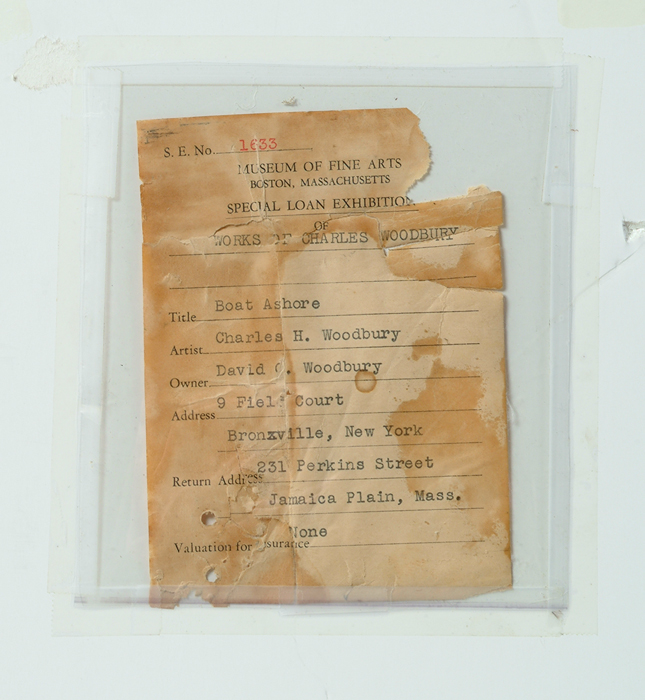 S. E. No. 1633
MUSEUM OF FINE ARTS
BOSTON, MASSACHUSETTS
SPECIAL LOAN EXHIBITION
OF
WORKS OF CHARLES WOODBURY
Title Boat Ashore
Artist Charles H. Woodbury
Owner David O. Woodbury
Address 9 Field Court
Bronxville, New York
Return Address 231 Perkins Street
Jamaica Plain, Mass.
Valuation for Insurance None